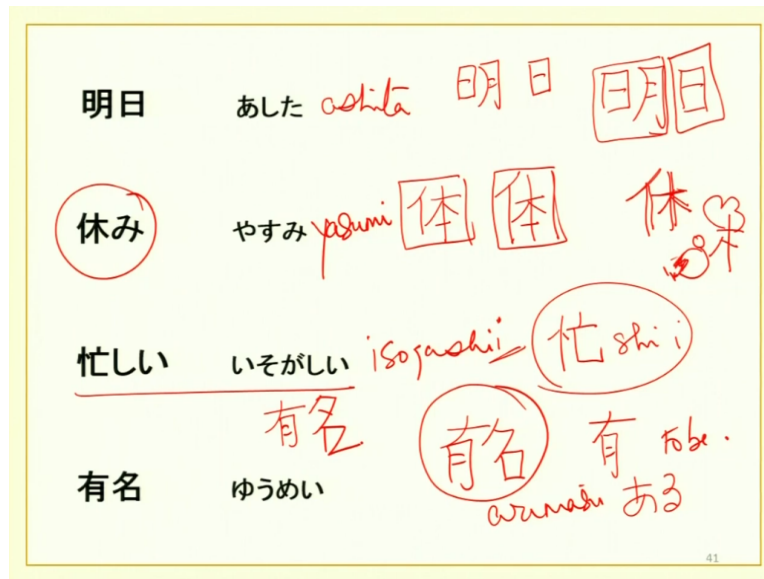 明日 あした ashita 明日 明日
休み やすみ yasumi 体 体 休
忙しい いそがしい isogashii 忙 shi i
有名
有名 ゆうめい 有名 有 to be.
arimasu ある
41